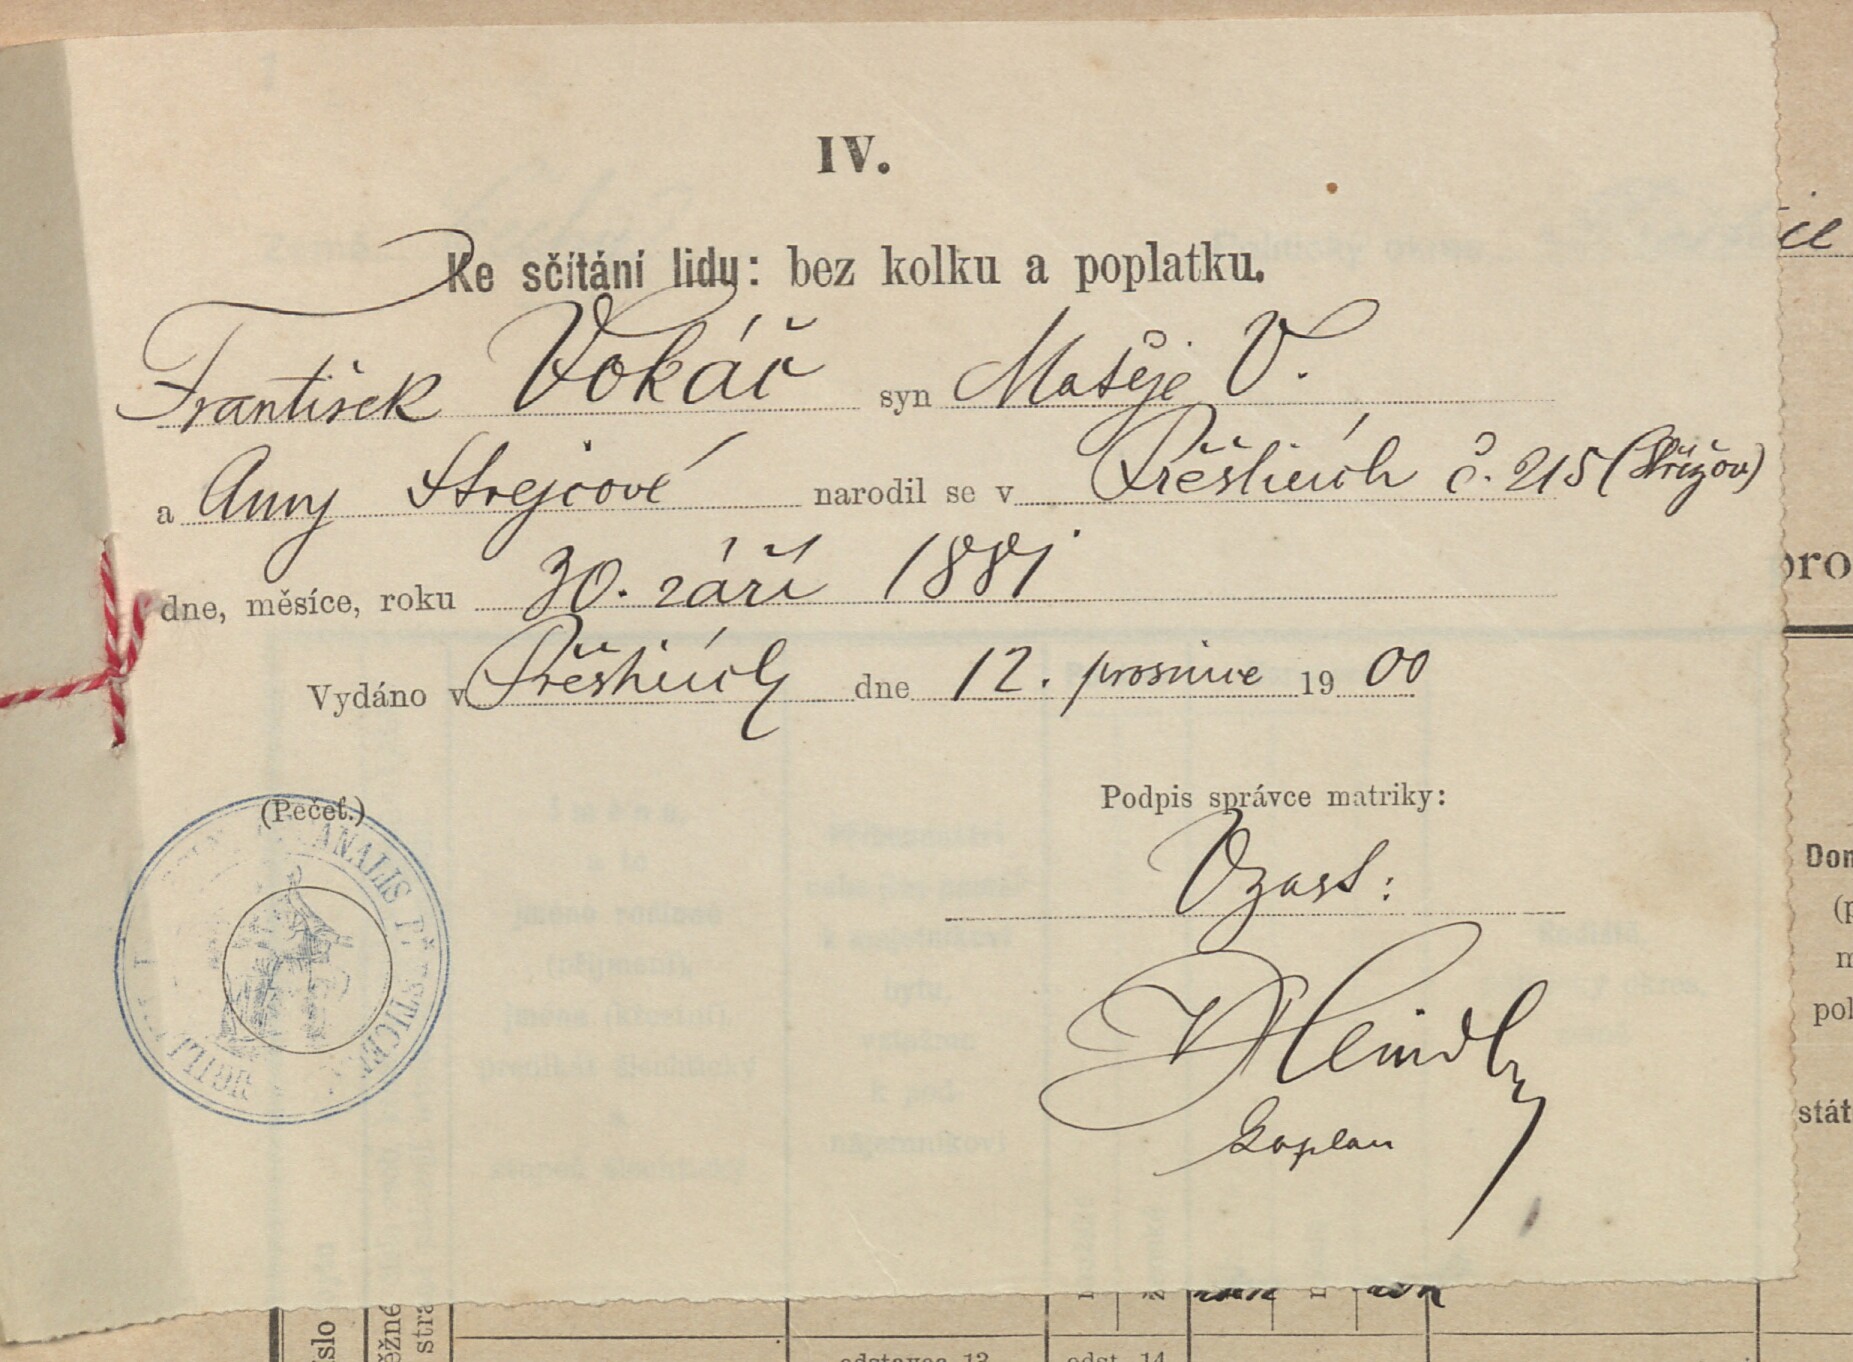 IV.
Ke sčítání lidu: bez kolku a poplatku.
František Vokáč syn Matěje V.
a Anny Strejcové narodil se v Přěšticích č. 215 (Střížov)
dne, měsíce, roku 30. září 1881
Vydáno v Přěšticích dne 12. prosince 1900
(Pečeť.)
ANALIS P STICEN
Podpis správce matriky:
Kaplan
ice
pro
Dom
(p
m
pol
stát
íslo
ěžné
stra
odstavec 13
odst. 14